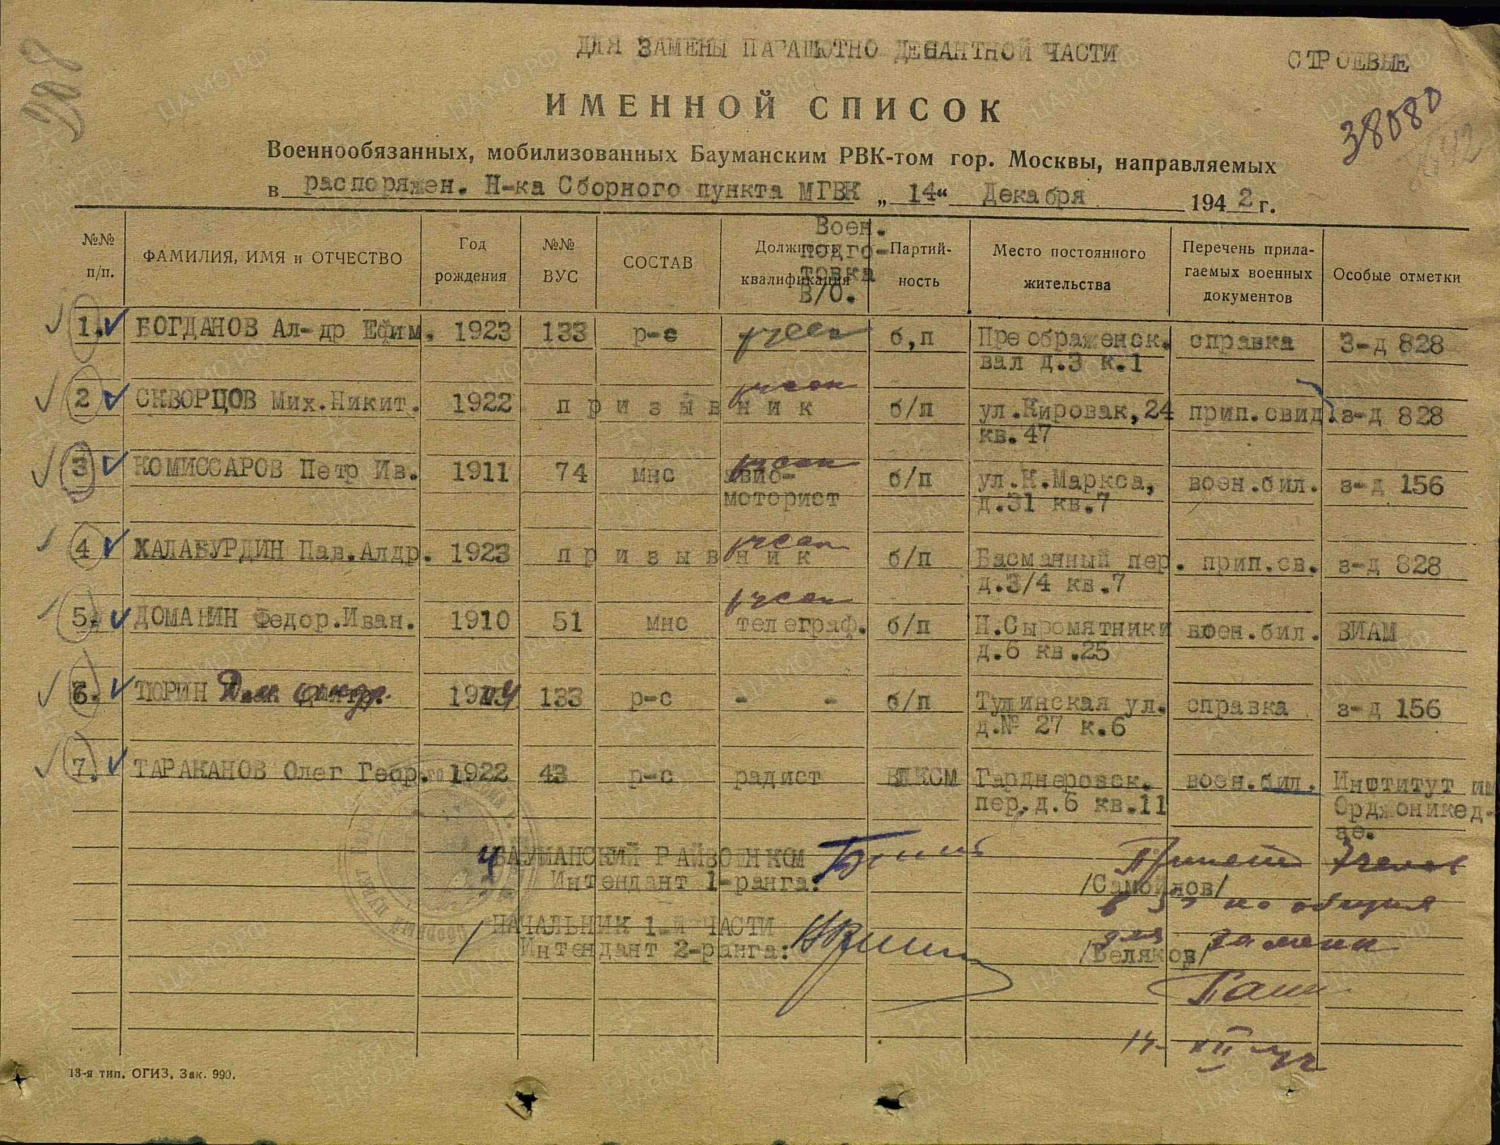 208
ДЛЯ ЗАМЕНЫ ПАРАШЮТНО ДЕСАНТНОЙ ЧАСТИ СТРОЕВЫЕ
ИМЕННОЙ СПИСОК
38080
Военнообязанных, мобилизованных Бауманским РВК-том гор. Москвы, направляемых
в распоряжен. Н-ка Сборного пункта МГВК „ 14 “ Декабря 1942 г.
№№ п/п. ФАМИЛИЯ, ИМЯ и ОТЧЕСТВО Год рождения №№ ВУС СОСТАВ Должность квалификация Воен. подго-товка В/О. Партий-ность Место постоянного жительства Перечень прила-гаемых военных документов Особые отметки
1. БОГДАНОВ Ал-др Ефим. 1923 133 р-с б,п Преображенск. справка З-д 828
вал д.3 к.1
2 СКВОРЦОВ Мих.Никит. 1922 призывник б/п ул.Кировак,24 прип.свид. з-д 828
кв.47
3 КОМИССАРОВ Петр Ив. 1911 74 мнс авио- б/п ул.К.Маркса, воен.бил. з-д 156
моторист д.31 кв.7
4 ХАЛАБУРДИН Пав.Алдр. 1923 призывник б/п Басманный пер. прип.св. з-д 828
д.3/4 кв.7
5. ДОМАНИН Федор.Иван. 1910 51 мнс телеграф. б/п Н.Сыромятники воен.бил. ВИАМ
д.6 кв.25
6. ТЮРИН 133 р-с - - б/п Тушинская ул. справка з-д 156
д.№ 27 к.6
7. ТАРАКАНОВ Олег Геор. 1922 43 р-с радист ВЛКСМ Гарднеровск. воен.бил. Институт им
пер.д.6 кв.11 Орджоникед-
зе.
БАУМАНСКИЙ РАЙВОЕНКОМ
Интендант 1-ранга: /Самойлов/
НАЧАЛЬНИК 1-й ЧАСТИ
Интендант 2-ранга: /Беляков/
для замены
14-XII-42
13-я тип. ОГИЗ, Зак. 990.